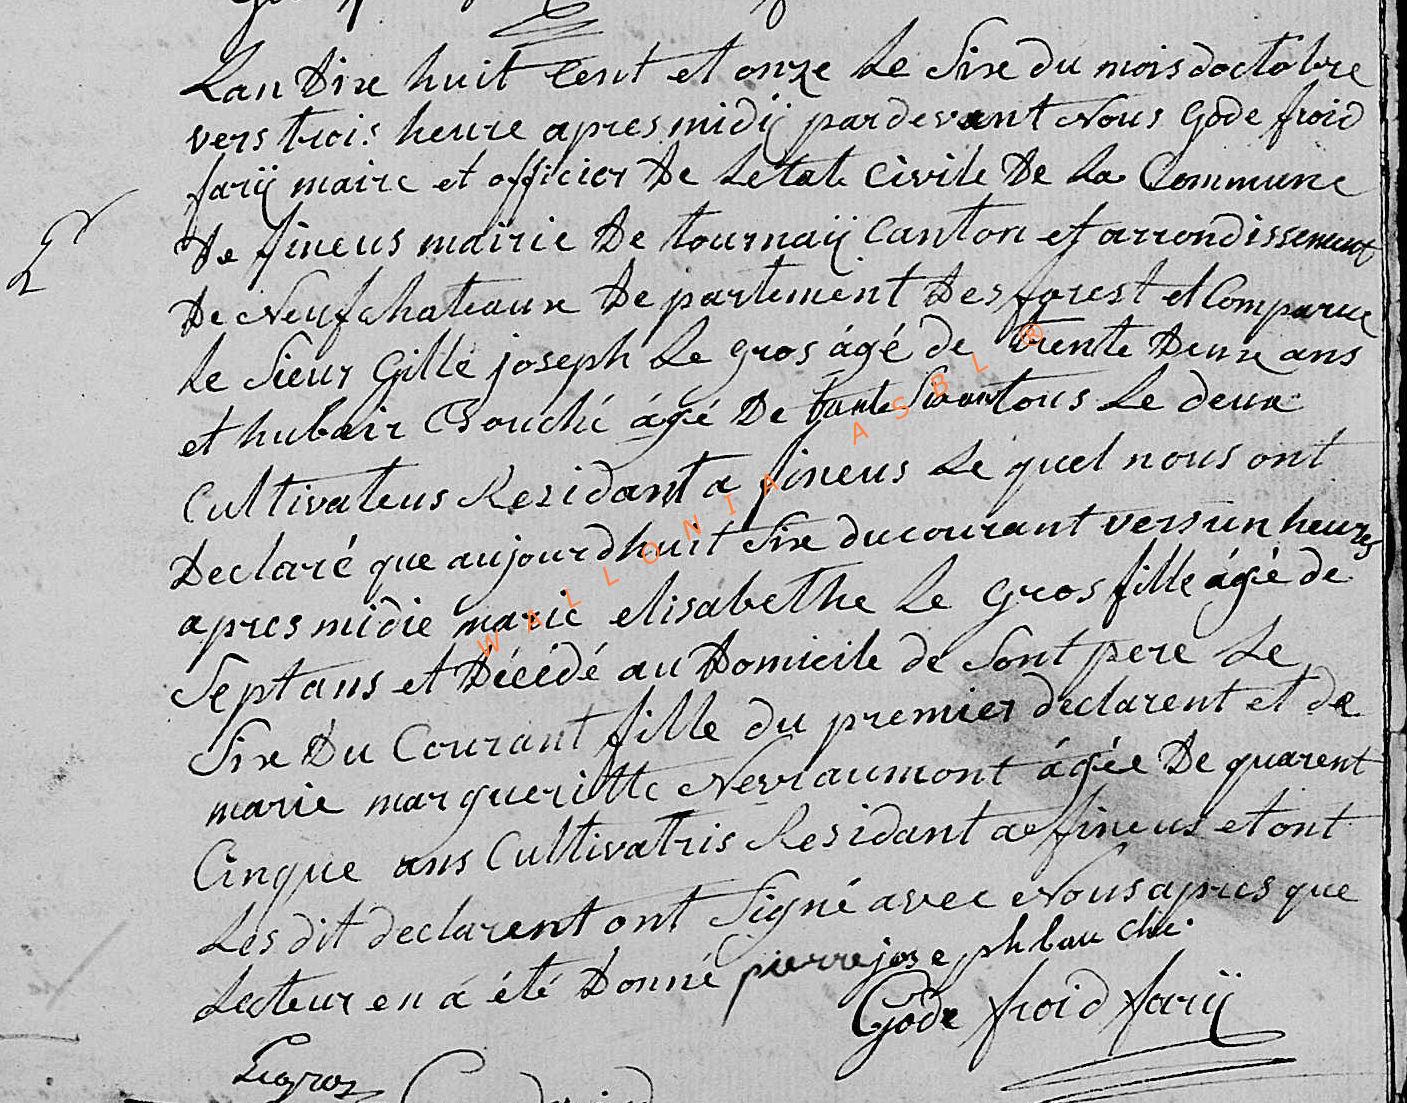 Lan Dixe huit Cent et onze Le Sixe du mois doctobre
vers trois heure apres midij pardevant Nous Gode froid
farij maire et officier De Letate Civile De La Commune
De fineus mairie De tournaij Canton et arrondissement
De Neufchateaux De partement Des forest et Comparue
Le Sieur Gille joseph Le gros ágé de trente Deuxe ans
et hubair Bouché ágé De tous Le deux
Cultivateus Residant a fineus Le quel nous ont
Declaré que aujourdhuit Sixe du courant vers un heures
apres midie marie elisabethe Le Gros fille ágié de
Sept ans et Décédé au Domicile de Sont pere Le
Sixe Du Courant fille du premier declarent et de
marie margueritte Nevraumont ágée De quarent
Cinque ans Cultivatris Residant a fineus et ont
Les dit declarent ont Signé avec Nous apres que
Lecteur en a été Donné pierre jose ph bau ché
Gode froid farij
Legros
WALLONIA ASBL ®